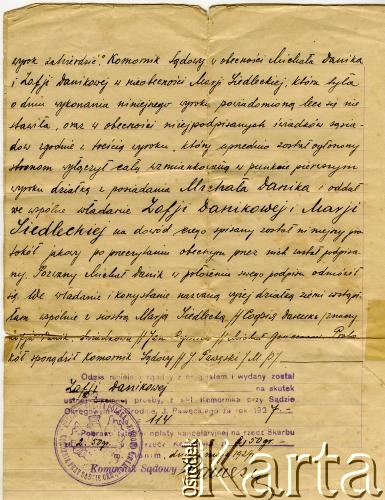 wyrok zatwierdzić." Komornik Sądowy w obecności Michała Danika
i Zofji Danikowej w nieobecności Marji Siedleckiej, która była
o dniu wykonania niniejszego wyroku powiadomioną lecz się nie
stawiła, oraz w obecności niżej podpisanych świadków sąsia-
dów zgodnie z treścią wyroku, który uprzednio został ogłoszony
stronom wyłączył całą wzmiankowaną w punkcie pierwszym
wyroku działkę z posiadania Michała Danika i oddał
we wspólne władanie Zofji Danikowej i Marji
Siedleckiej na dowód czego spisany został niniejszy pro-
tokół jakowy po przeczytaniu obecnym przez nich został podpisa-
ny. Pozwany Michał Danik w położeniu swego podpisu odmówił
się. We władanie i korzystanie nazwaną wyżej działką ziemi wstąpi-
łam wspólnie z siostrą Marją Siedlecką // София Даникова /znany
Michał
kół sporządził Komornik Sądowy // J. Pawęski /M.P./
Odpis niniejszy zgodny z oryginałem i wydany został
Zofji Danikowej na skutek
ustnej prośby, z akt Komornika przy Sądzie
Okręgowym w Grodnie, J. Pawęskiego za rok 1927
No 114
Pobrano tytułem opłaty kancelaryjnej na rzecz Skarbu
2.50 gr. na rzecz 50 gr.
dnia 1927 r.
Komornik Sądowy
ośrodek
Karta